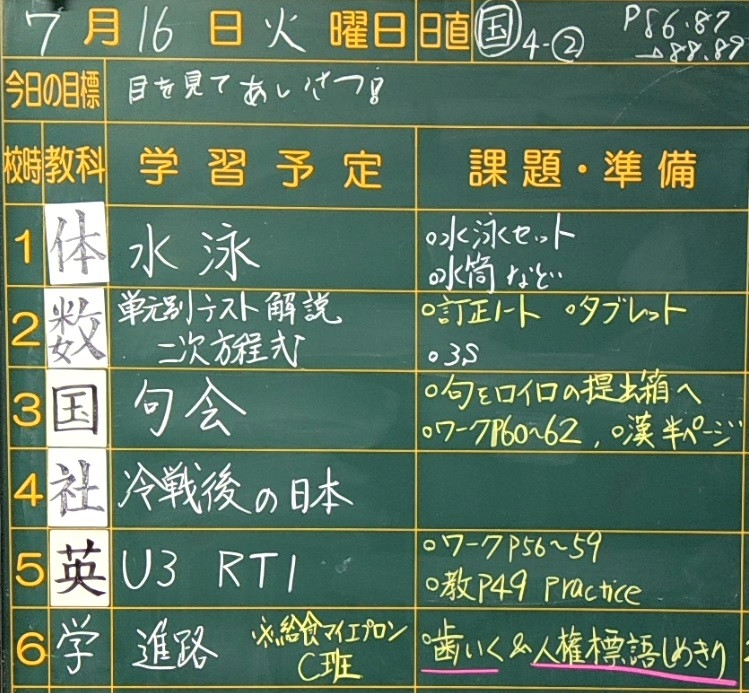 7月16日火曜日 日直 国 4-② P86.87
→88.89
今日の目標 目を見てあいさつ!
校時 教科 学習予定 課題・準備
1 体 水泳 ○水泳セット
○水筒など…
2 数 単元別テスト解説 ○訂正ノート ○タブレット
二次方程式 ○3S
3 国 句会 ○句をロイロの提出箱へ
○ワークP60～62, ○漢半ページ
4 社 冷戦後の日本
5 英 U3 RT1 ○ワークP56～59
○教P49 Practice
6 学 進路 ※給食マイエプロン ○歯いく&人権標語しめきり
C班